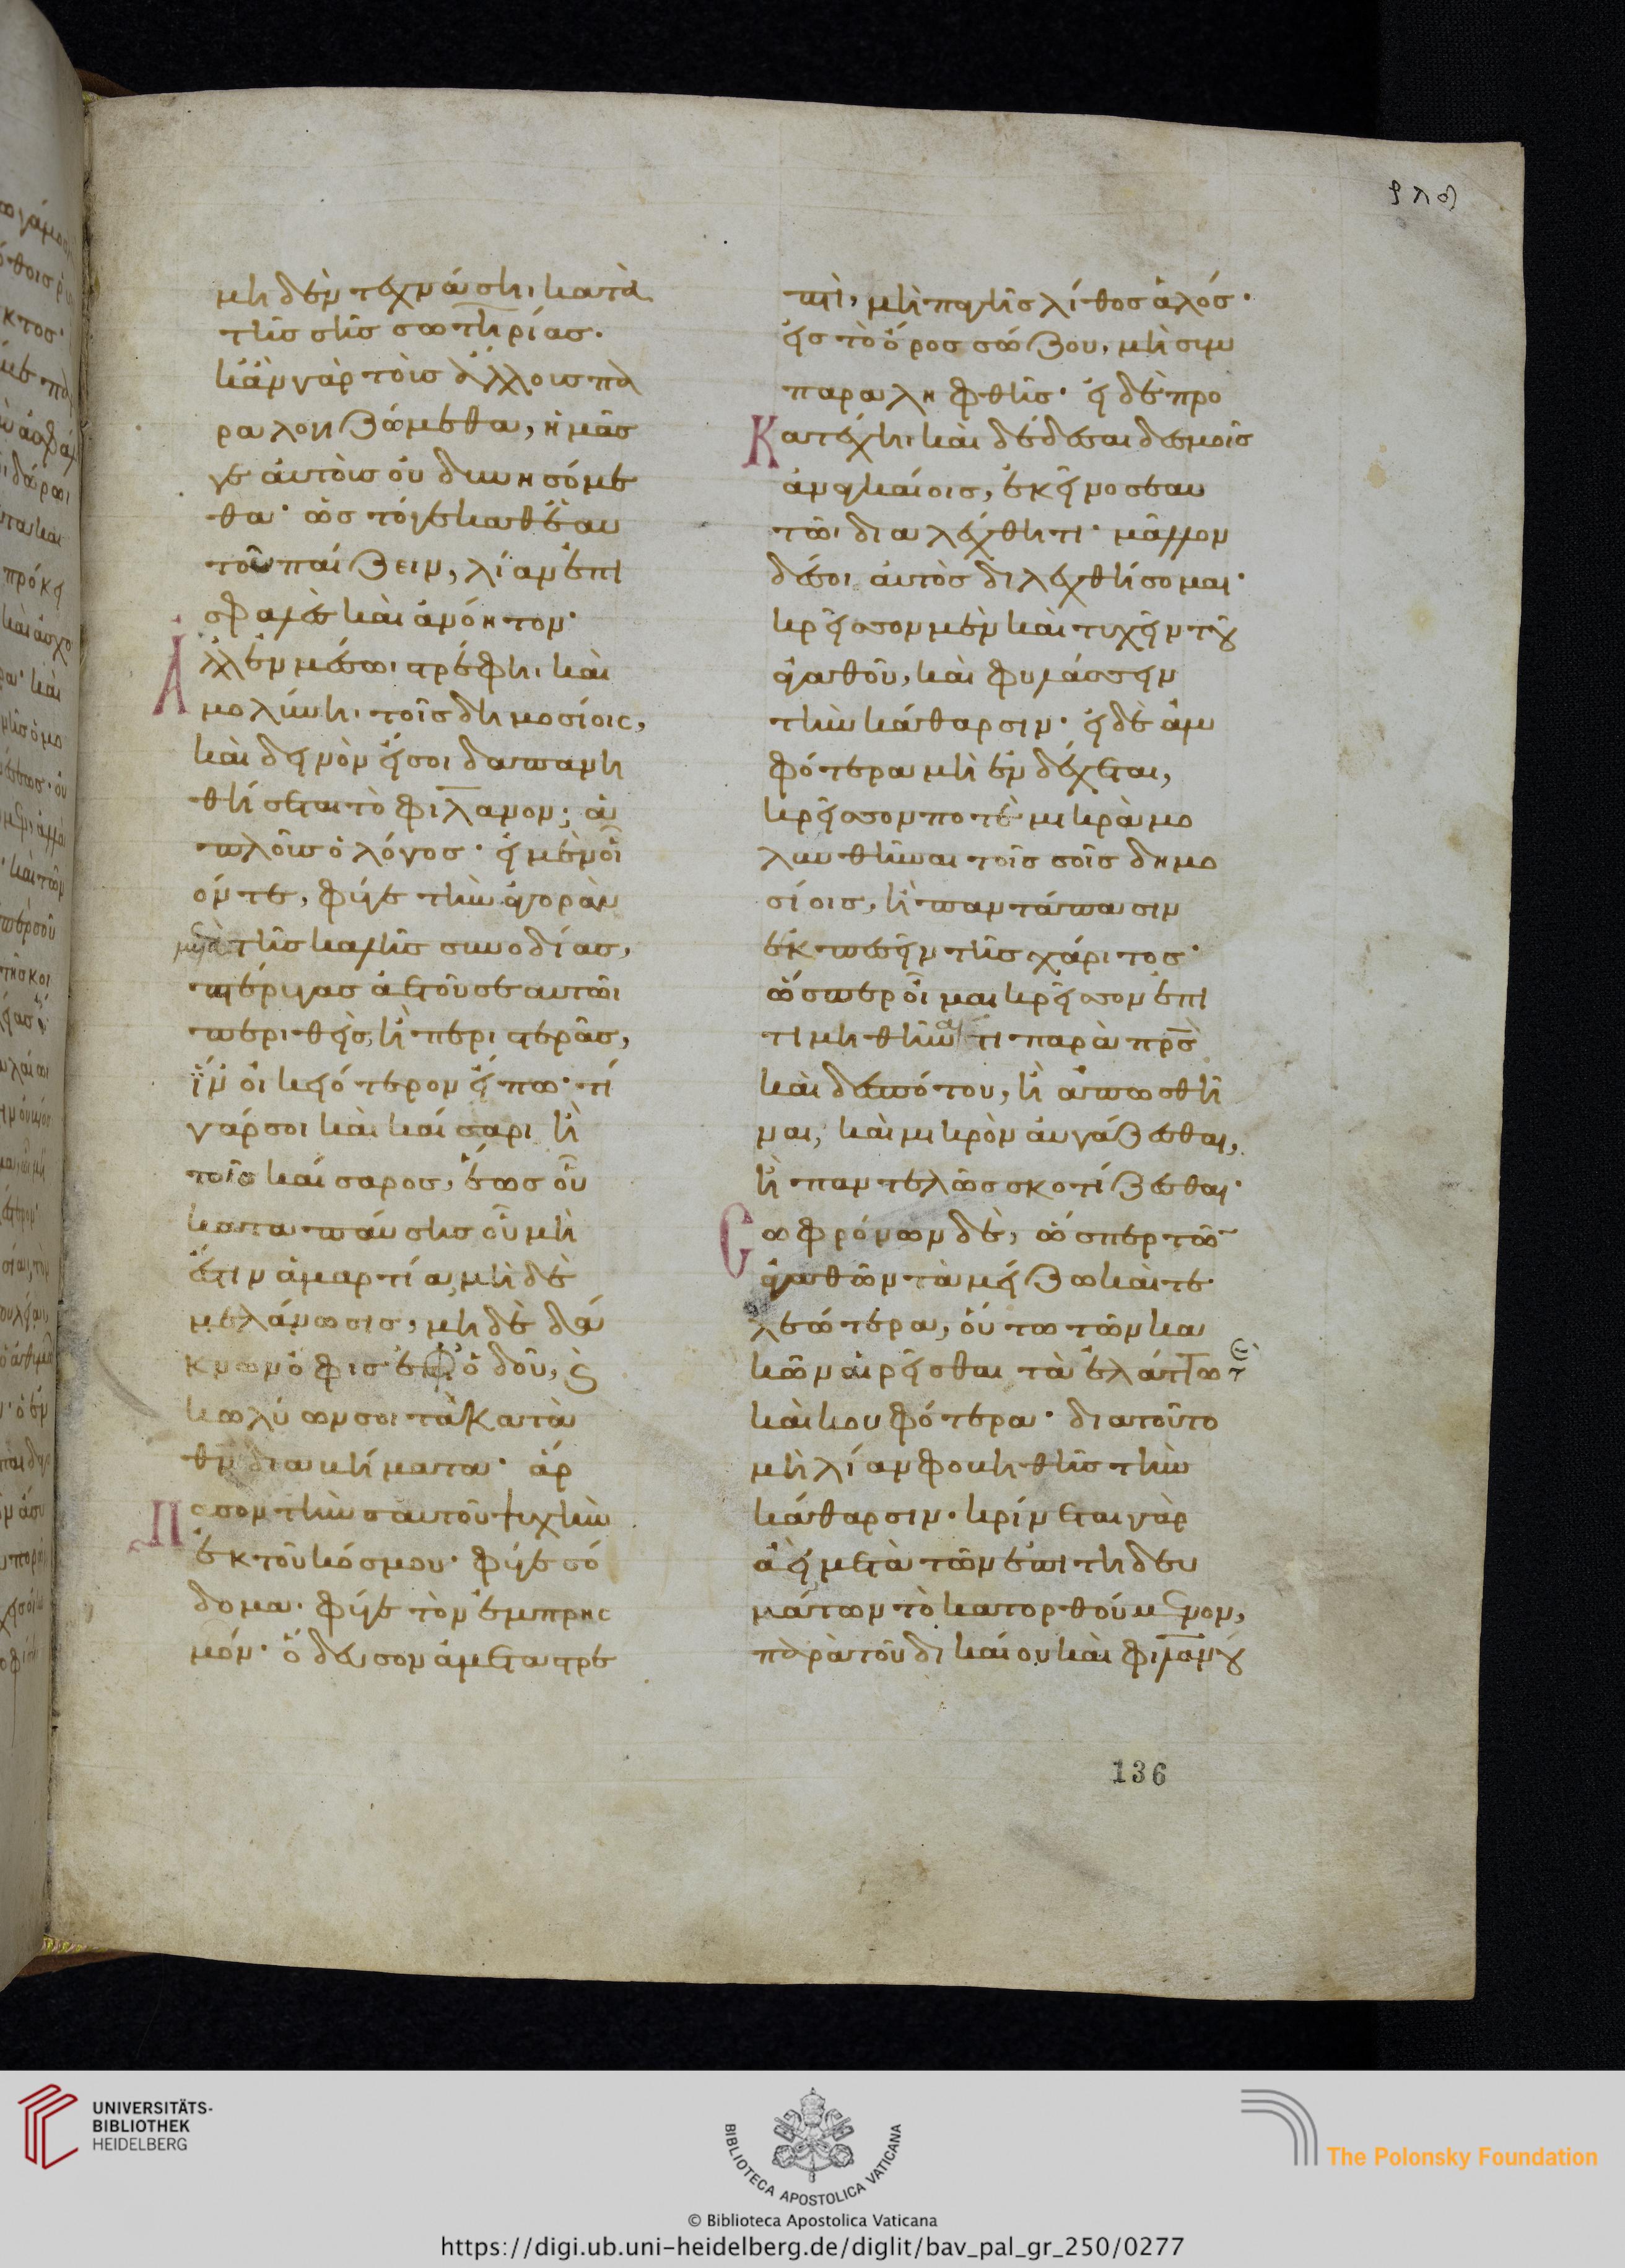 μηδὲν τεχνάσηι κατὰ
τῆς σῆς σωτηρίας.
κἂν γὰρ τοὺς ἄλλους πα
ραλογιζώμεθα, ἡμᾶς
γε αὐτοὺς οὐ δυνησόμε
θα· ὡς τόγε καθ' ἑαυ
τοῦ παίζειν, λίαν ἐπι
σφαλὲς καὶ ἀνόητον·
Ἀλλ' ἐν μέσωι στρέφηι, καὶ
μολύνηι τοῖς δημοσίοις,
καὶ δεινὸν εἴ σοι δαπανη
θήσεται τὸ φιλανον; ἁ
πλοῦς ὁ λόγος· εἰ μὲν οἷ
όν τε, φύγε τὴν ἀγορὰν
μετὰ τῆς καλῆς συνοδίας,
πτέρυγας ἀετοῦ σεαυτῶι
περιθεὶς, ἢ περιστερᾶς,
ἵν' οἰκειότερον εἴπω· τί
γάρ σοι καὶ καίσαρι ἢ
τοῖς καίσαρος, ἕως οὗ
καταπαύσης οὗ μὴ
ἔστιν ἁμαρτία, μὴ δὲ
μελάνωσις, μηδὲ δά
κνων ὄφις ἐφ' ὁδοῦ, ϗ
κωλύων σοι τὰ κατὰ
θν διαβήματα· ἅρ
Πασον τὴν σαυτοῦ ψυχὴν
ἐκ τοῦ κόσμου· φύγε σό
δομα· φύγε τὸν ἐμπρησ
μόν· ὅδευσον ἀμεταστρε
πτὶ, μὴ παγῆς λίθος ἁλός·
εἰς τὸ ὄρος σώζου, μὴ συμ
παραληφθῆς· εἰ δὲ προ
Κατέχηι καὶ δέδεσαι δεσμοῖς
ἀναγκαίοις, ἐκεῖνο σεαυ
τῶι διαλέχθητι· μᾶλλον
δέ σοι αὐτὸς διαλεχθήσομαι·
κρεῖσσον μὲν καὶ τυχεῖν τοῦ
ἀγαθοῦ, καὶ φυλάσσειν
τὴν κάθαρσιν· εἰ δὲ ἀμ
φότερα μὴ ἐνδέχεται,
κρεῖσσον ποτὲ μικρὰ μο
λυνθῆναι τοῖς σοῖς δημο
σίοις, ἢ παντάπασιν
ἐκπεσεῖν τῆς χάριτος·
ὥσπερ οἶμαι κρεῖσσον ἐπι
τιμηθῆναί τι παρὰ πρς
καὶ δεσπότου, ἢ ἀπωσθῆ
ναι, καὶ μικρὸν αὐγάζεσθαι,
ἢ παντελῶς σκοτίζεσθαι·
Σωφρόνων δὲ, ὥσπερ τῶν
ἀγαθῶν τὰ μείζω καὶ τε
λεώτερα, οὕτω τῶν κα
κῶν αἱρεῖσθαι τὰ ἐλάττω τε
καὶ κουφότερα· διατοῦτο
μὴ λίαν φοβηθῆς τὴν
κάθαρσιν· κρίνεται γὰρ
ἀεὶ μετὰ τῶν ἐπιτηδευ
μάτων τὸ κατορθούμενον,
παρὰ τοῦ δικαίου καὶ φιλανου
136
UNIVERSITÄTS-
BIBLIOTHEK
HEIDELBERG
BIBLIOTECA APOSTOLICA VATICANA
The Polonsky Foundation
© Biblioteca Apostolica Vaticana
https://digi.ub.uni-heidelberg.de/diglit/bav_pal_gr_250/0277